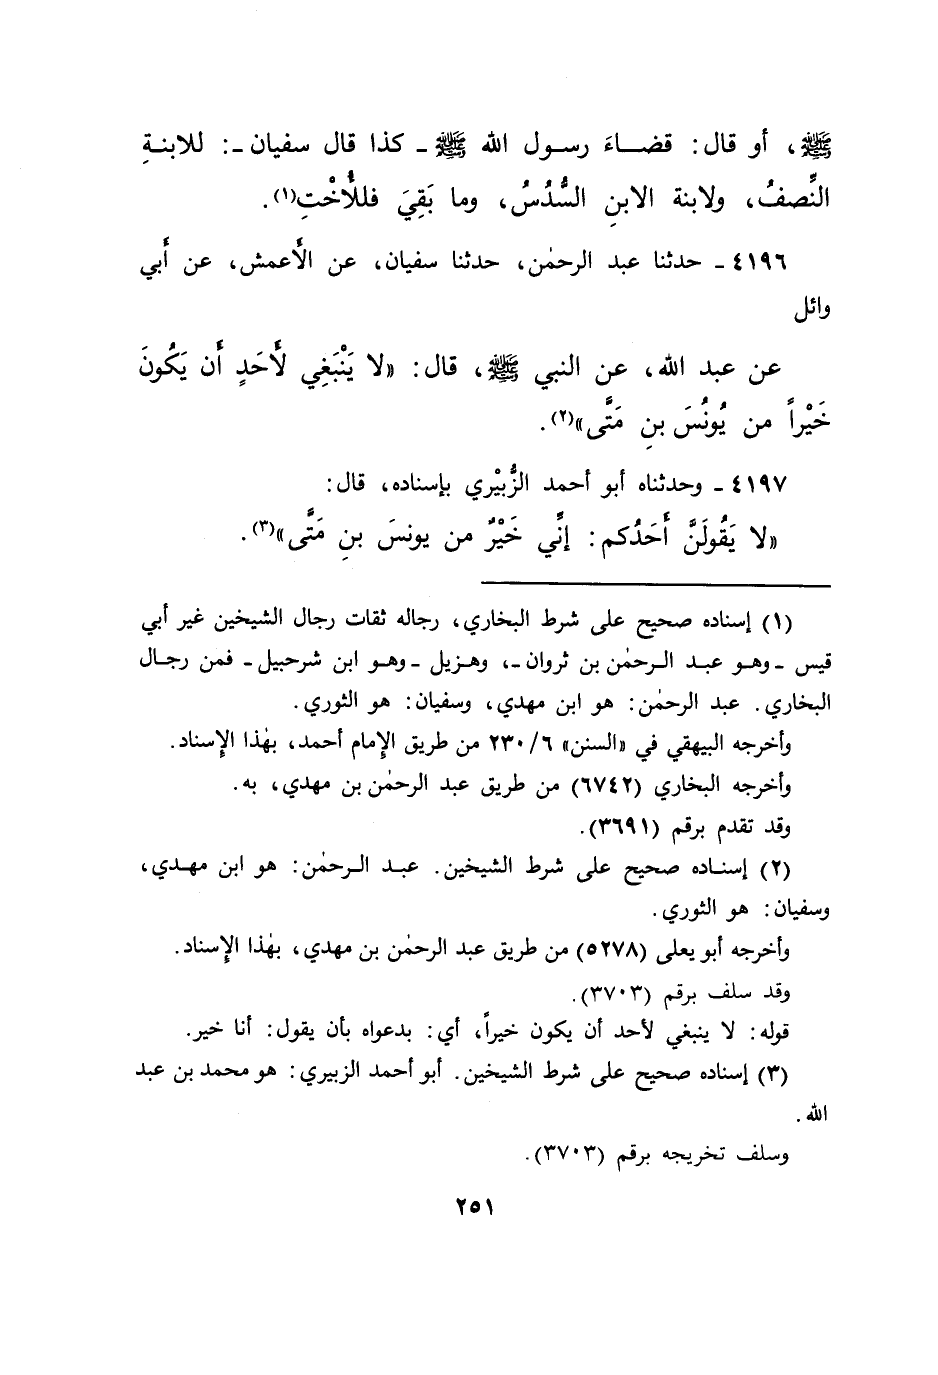 ﷺ، أو قال: قضـاءَ رسـول الله ﷺ ـ كذا قال سفيان ـ: للابنـةِ
النِّصفُ، ولابنة الابنِ السُّدُسُ، وما بَقِيَ فللأُخْتِ(١).
٤١٩٦ ـ حدثنا عبد الرحمٰن، حدثنا سفيان، عن الأَعمش، عن أَبي
وائل
عن عبد الله، عن النبي ﷺ، قال: «لا يَنْبَغِي لأَحَدٍ أَن يَكُونَ
خَيْراً من يُونُسَ بنِ مَتَّى»(٢).
٤١٩٧ ـ وحدثناه أبو أحمد الزُّبيْري بإسناده، قال:
«لا يَقُولَنَّ أَحَدُكم: إنِّي خَيْرٌ من يونسَ بنِ مَتَّى»(٣).
(١) إسناده صحيح على شرط البخاري، رجاله ثقات رجال الشيخين غير أبي
قيس ـ وهـو عبـد الـرحمٰن بن ثروان ـ، وهـزيل ـ وهـو ابن شرحبيل ـ فمن رجـال
البخاري. عبد الرحمٰن: هو ابن مهدي، وسفيان: هو الثوري.
وأخرجه البيهقي في «السنن» ٢٣٠/٦ من طريق الإمام أحمد، بهٰذا الإسناد.
وأخرجه البخاري (٦٧٤٢) من طريق عبد الرحمٰن بن مهدي، به.
وقد تقدم برقم (٣٦٩١).
(٢) إسنـاده صحيح على شرط الشيخين. عبـد الـرحمٰن: هو ابن مهـدي،
وسفيان: هو الثوري.
وأخرجه أبو يعلى (٥٢٧٨) من طريق عبد الرحمٰن بن مهدي، بهٰذا الإسناد.
وقد سلف برقم (٣٧٠٣).
قوله: لا ينبغي لأحد أن يكون خيراً، أي: بدعواه بأن يقول: أنا خير.
(٣) إسناده صحيح على شرط الشيخين. أبو أحمد الزبيري: هو محمد بن عبد
الله.
وسلف تخريجه برقم (٣٧٠٣).
٢٥١